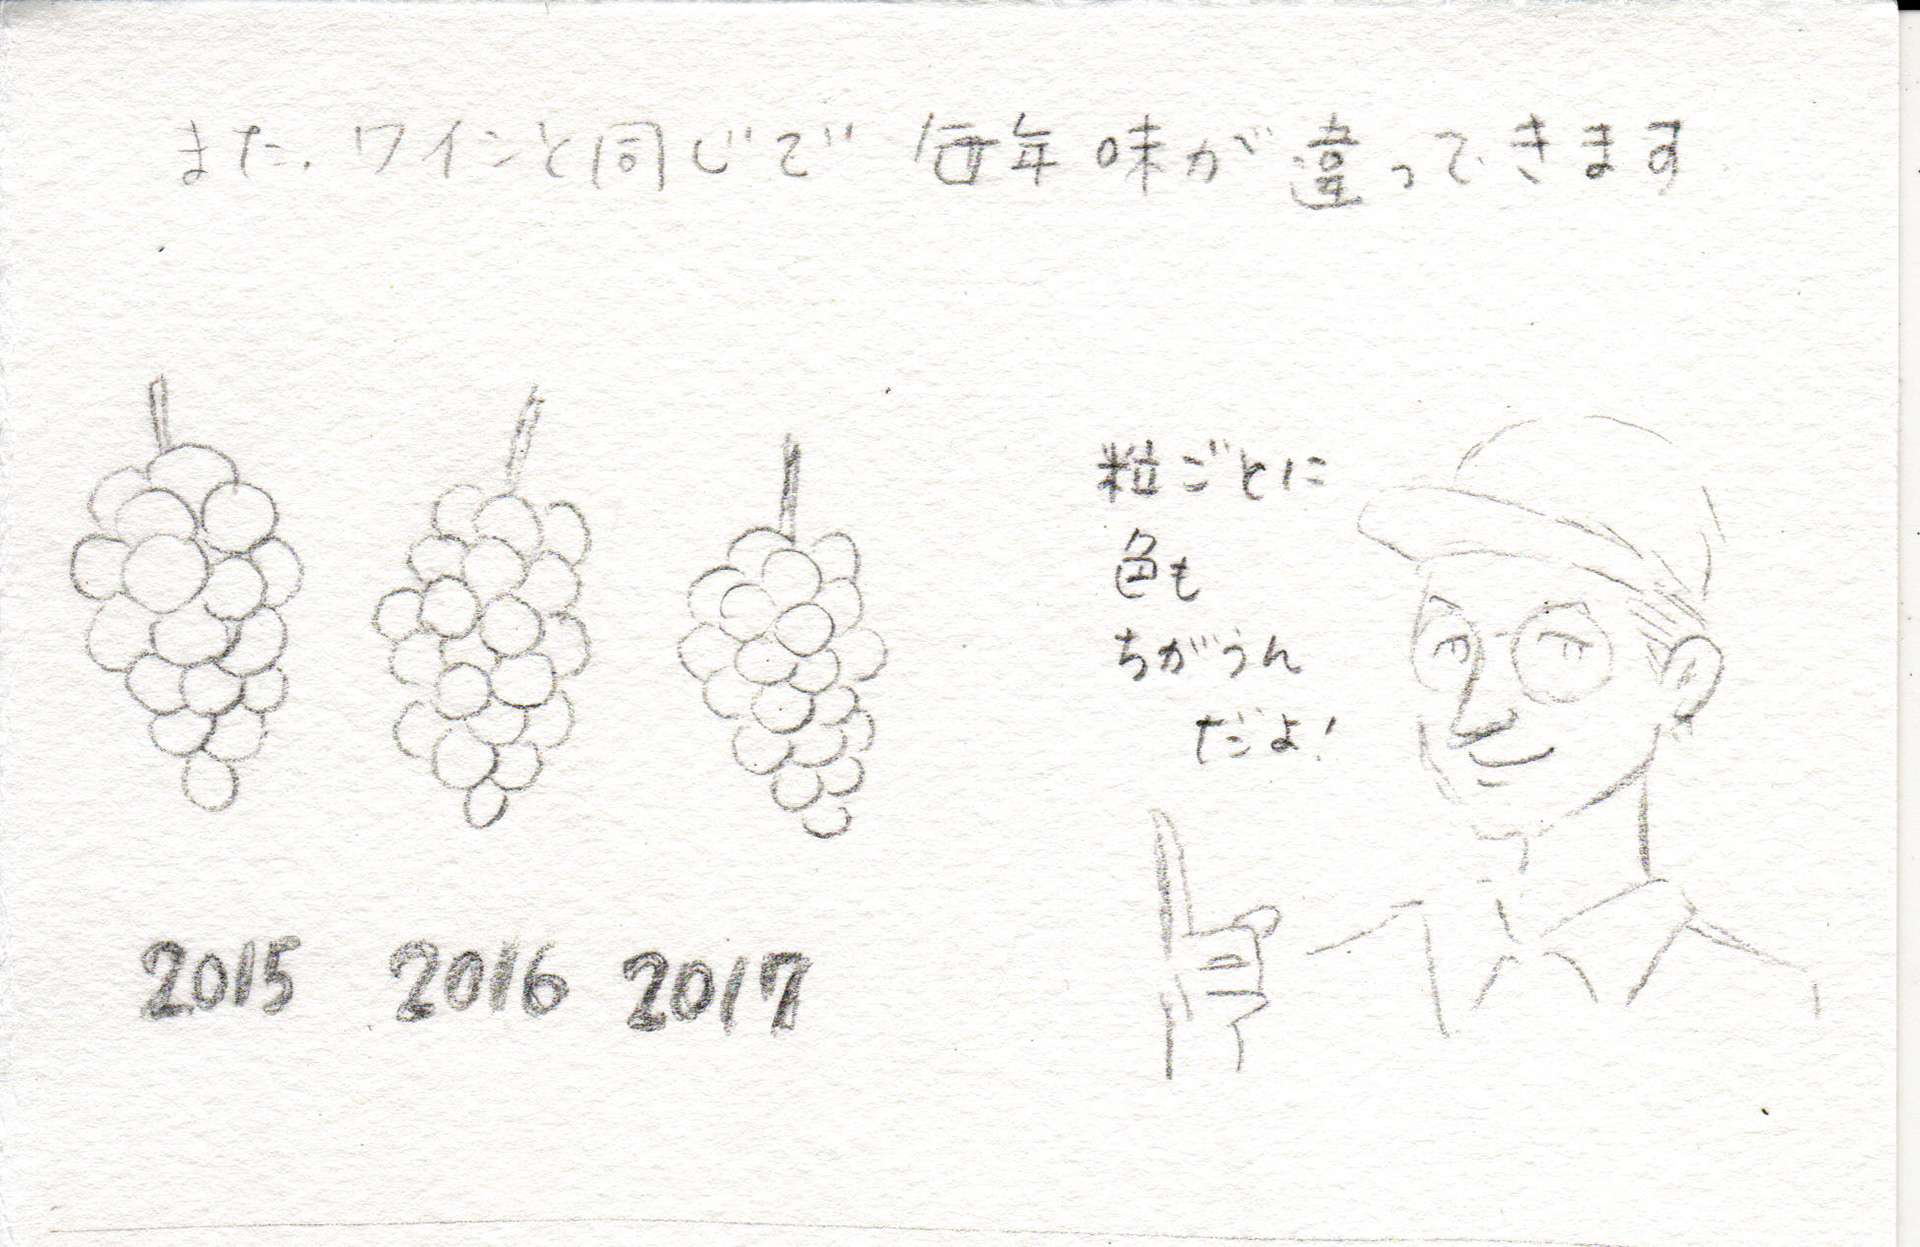 また、ワインと同じで 毎年 味が 違ってきます
粒ごとに
色も
ちがうん
だよ!
2015 2016 2017